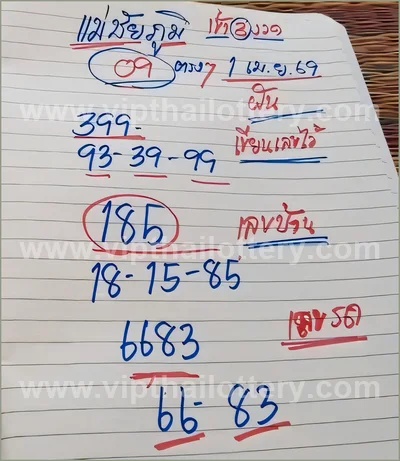 แม่ชัยภูมิ เข้า ③ งวด
09 ตรงๆ 1 เม.ย.69
ฝัน
399-
93-39-99 เขียนเลขไว้
185 เลขบ้าน
www.vipthailottery.com
18-15-85
6683 เลขรถ
www.vipthailottery.com
66-83